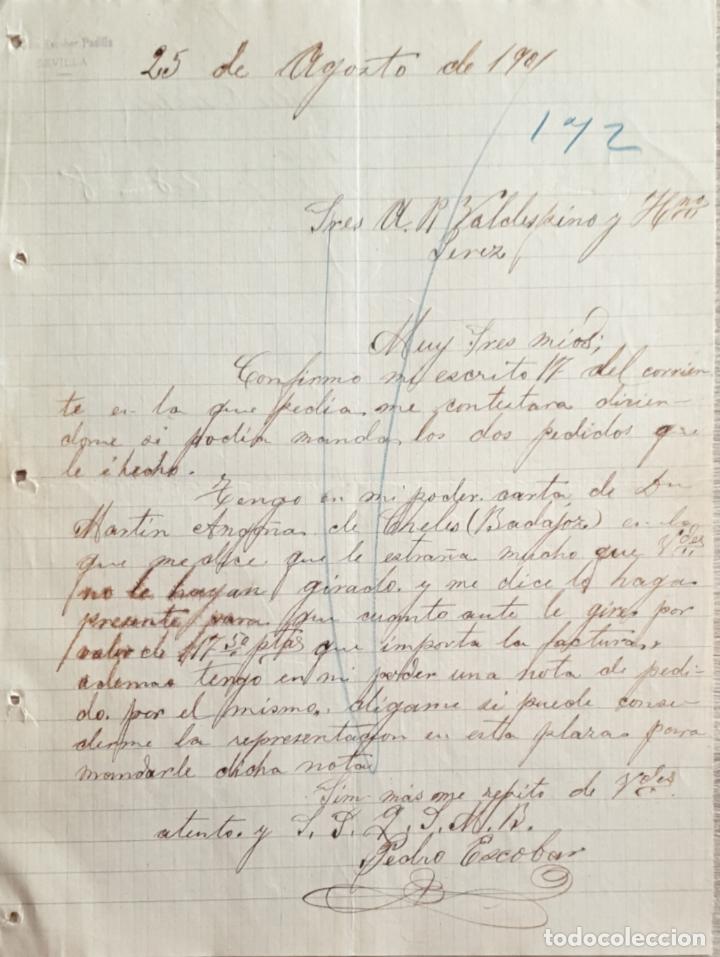 Escobar Padilla
SEVILLA
25 de Agosto de 1901
172
Sres A. R. Valdespino y Hno
Jerez
Muy Sres mios;
Confirmo mi escrito 17 del corrien-
te en la que pedia me contestara dicien-
dome si podia mandar los dos pedidos que
le é hecho.
Tengo en mi poder carta de Dn
Martin de Cheles (Badajoz) en la
que me dice que le estraña mucho que Vdes
no le hayan girado y me dice lo haga
presente para que cuanto ante le gire por
valor de 117 50 ptas que importa la factura,
ademas tengo en mi poder una nota de pedi-
do por el mismo. digame si puede conce-
derme la representacion en esta plaza para
mandarle dicha nota
Sim más me repito de Vdes
atento y S. S. Q. S. M. B.
Pedro Escobar
todocoleccion